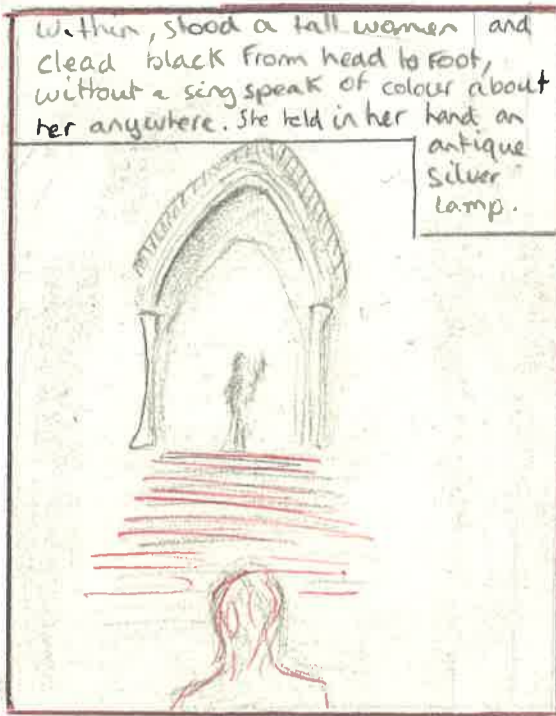 Within, stood a tall women and
clead black from head to foot,
without a sing speak of colour about
her anywhere. She held in her hand an
antique
silver
lamp.